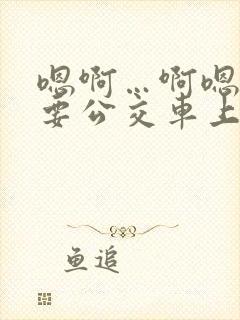 嗯啊…啊嗯
要公交车上
鱼追